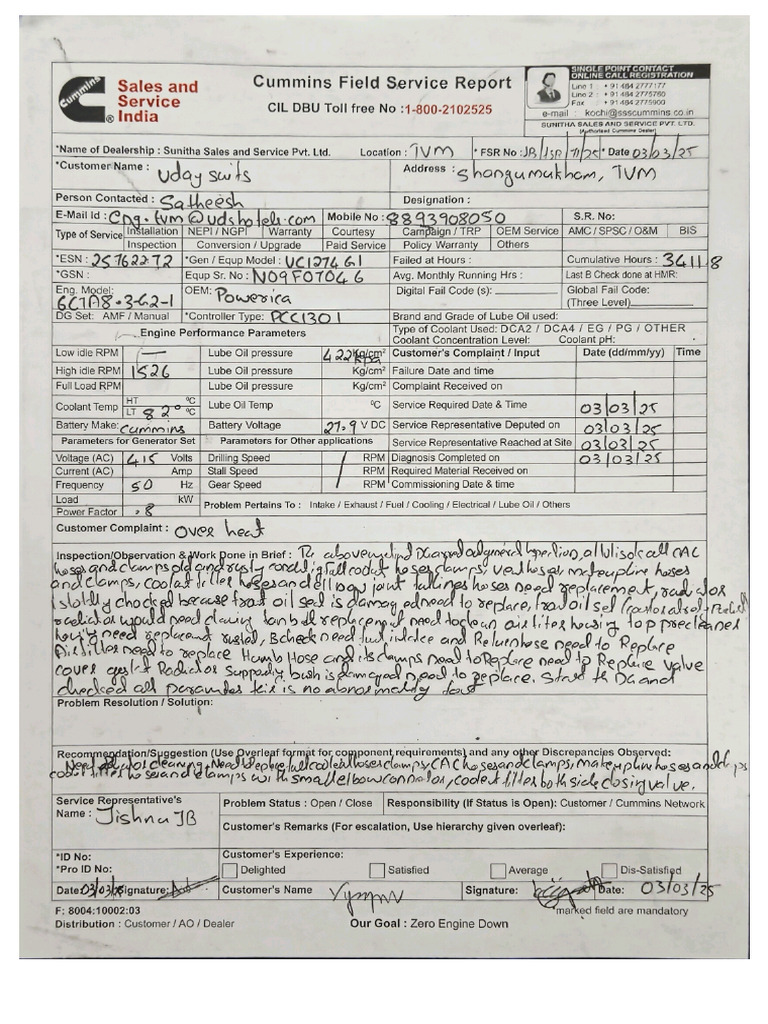 Cummins
Sales and
Service
® India
Cummins Field Service Report
CIL DBU Toll free No :1-800-2102525
SINGLE POINT CONTACT
ONLINE CALL REGISTRATION
Line 1 : + 91 484 2777177
Line 2 : + 91 484 2775760
Fax : + 91 484 2775900
e-mail : kochi@ssscummins.co.in
SUNITHA SALES AND SERVICE PVT. LTD.
(Authorised Cummins Dealer)
*Name of Dealership : Sunitha Sales and Service Pvt. Ltd. Location : TVM * FSR No : JB/ /25 * Date 03/03/25
*Customer Name : Uday suits Address : Shangumukham, TVM
Person Contacted : Satheesh Designation :
E-Mail Id : Eng.tvm@udshotels.com Mobile No : 8893908050 S.R. No:
Type of Service Installation NEPI / NGPI Warranty Courtesy Campaign / TRP OEM Service AMC / SPSC / O&M BIS
Inspection Conversion / Upgrade Paid Service Policy Warranty Others
*ESN : 25762272 *Gen / Equp Model : UC1274G1 Failed at Hours : Cumulative Hours : 34118
*GSN : Equp Sr. No : N09F07046 Avg. Monthly Running Hrs : Last B Check done at HMR:
Eng. Model: 6CTA8.3-G2-1 OEM: Powerica Digital Fail Code (s): Global Fail Code:
(Three Level)
DG Set: AMF / Manual *Controller Type: PCC1301 Brand and Grade of Lube Oil used:
Engine Performance Parameters Type of Coolant Used: DCA2 / DCA4 / EG / PG / OTHER
Coolant Concentration Level: Coolant pH:
Low idle RPM — Lube Oil pressure 422 Kg/cm² kpa Customer's Complaint / Input Date (dd/mm/yy) Time
High idle RPM 1526 Lube Oil pressure Kg/cm² Failure Date and time
Full Load RPM Lube Oil pressure Kg/cm² Complaint Received on
Coolant Temp HT ºC Lube Oil Temp ºC Service Required Date & Time 03/03/25
LT 82° ºC
Battery Make: Cummins Battery Voltage 27.9 V DC Service Representative Deputed on 03/03/25
Parameters for Generator Set Parameters for Other applications Service Representative Reached at Site 03/03/25
Voltage (AC) 415 Volts Drilling Speed RPM Diagnosis Completed on 03/03/25
Current (AC) Amp Stall Speed RPM Required Material Received on
Frequency 50 Hz Gear Speed RPM Commissioning Date & time
Load kW
Power Factor .8 Problem Pertains To : Intake / Exhaust / Fuel / Cooling / Electrical / Lube Oil / Others
Customer Complaint : Over heat
Inspection/Observation & Work Done in Brief : CAC
hoses and clamps old and rusty condig full coolant hoses clamps, vent hoses, makeupline hoses
and clamps, coolant filter hoses and elbow joint hoses need replacement, radiator
is totally chocked because front oil seal is damaged need to replace,
radiator would need cleaning need to clean air filter housing top precleaner
housing need replacement rusted, B check need fuel intake and Return hose need to Replace
Air filter need to replace Hump Hose and its clamps need to Replace need to Replace valve
cover gasket Radiator supporting bush is damaged need to replace. Start the DG and
checked all parameters there is no abnormality found
Problem Resolution / Solution:
Recommendation/Suggestion (Use Overleaf format for component requirements) and any other Discrepancies Observed:
Need radiator cleaning, Need to replace full coolant hoses clamps, CAC hoses and clamps, makeupline hoses and clamps
coolant filter hoses and clamps with small elbow connector, coolent filter both side closing valve.
Service Representative's Problem Status : Open / Close Responsibility (If Status is Open): Customer / Cummins Network
Name : Jishnu JB
Customer's Remarks (For escalation, Use hierarchy given overleaf):
*ID No: Customer's Experience:
*Pro ID No: Delighted Satisfied Average Dis-Satisfied
Date: 03/03/25 Signature: Customer's Name Signature: Date: 03/03/25
F: 8004:10002:03 *marked field are mandatory
Distribution : Customer / AO / Dealer Our Goal : Zero Engine Down